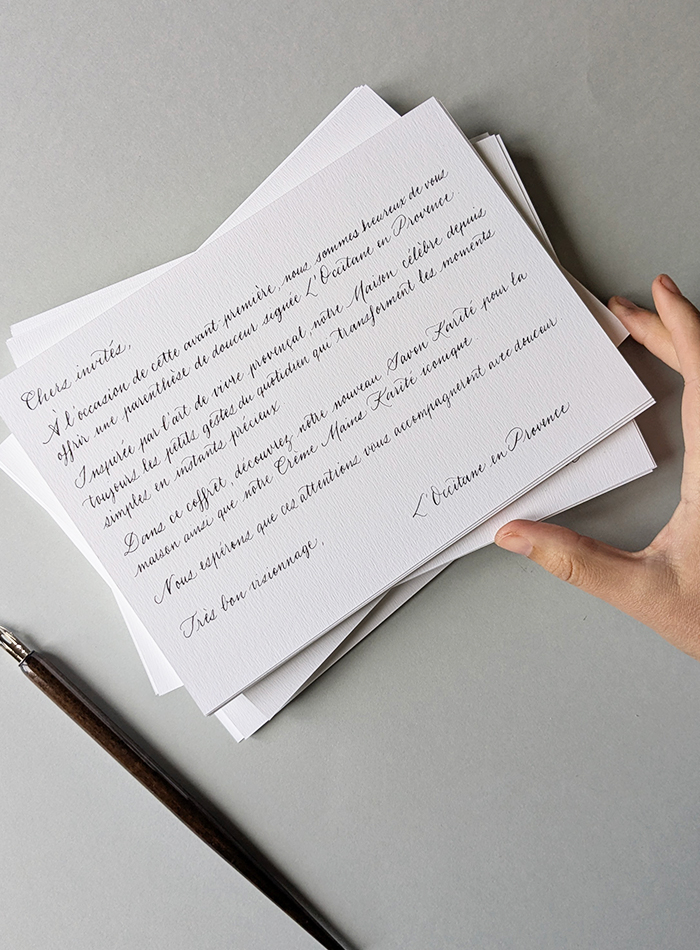 Chers invités,
À l'occasion de cette avant-première, nous sommes heureux de vous
offrir une parenthèse de douceur signée L'Occitane en Provence.
Inspirée par l'art de vivre provençal, notre Maison célèbre depuis
toujours les petits gestes du quotidien qui transforment les moments
simples en instants précieux
Dans ce coffret, découvrez notre nouveau Savon Karité pour la
maison ainsi que notre Crème Mains Karité iconique
Nous espérons que ces attentions vous accompagneront avec douceur.
Très bon visionnage,
L'Occitane en Provence